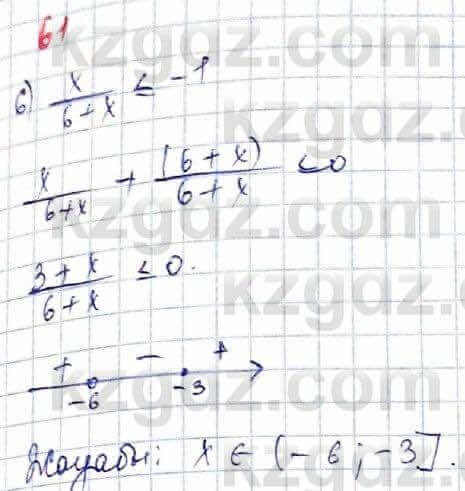 61
б) x/(6+x) ≤ -1
x/(6+x) + (6+x)/(6+x) ≤ 0
(3+x)/(6+x) ≤ 0.
+ - +
-6 -3
Жауабы: x ∈ (-6; -3].
kzgdz.com
kzgdz.com
kzgdz.com
kzgdz.com
kzgdz.com